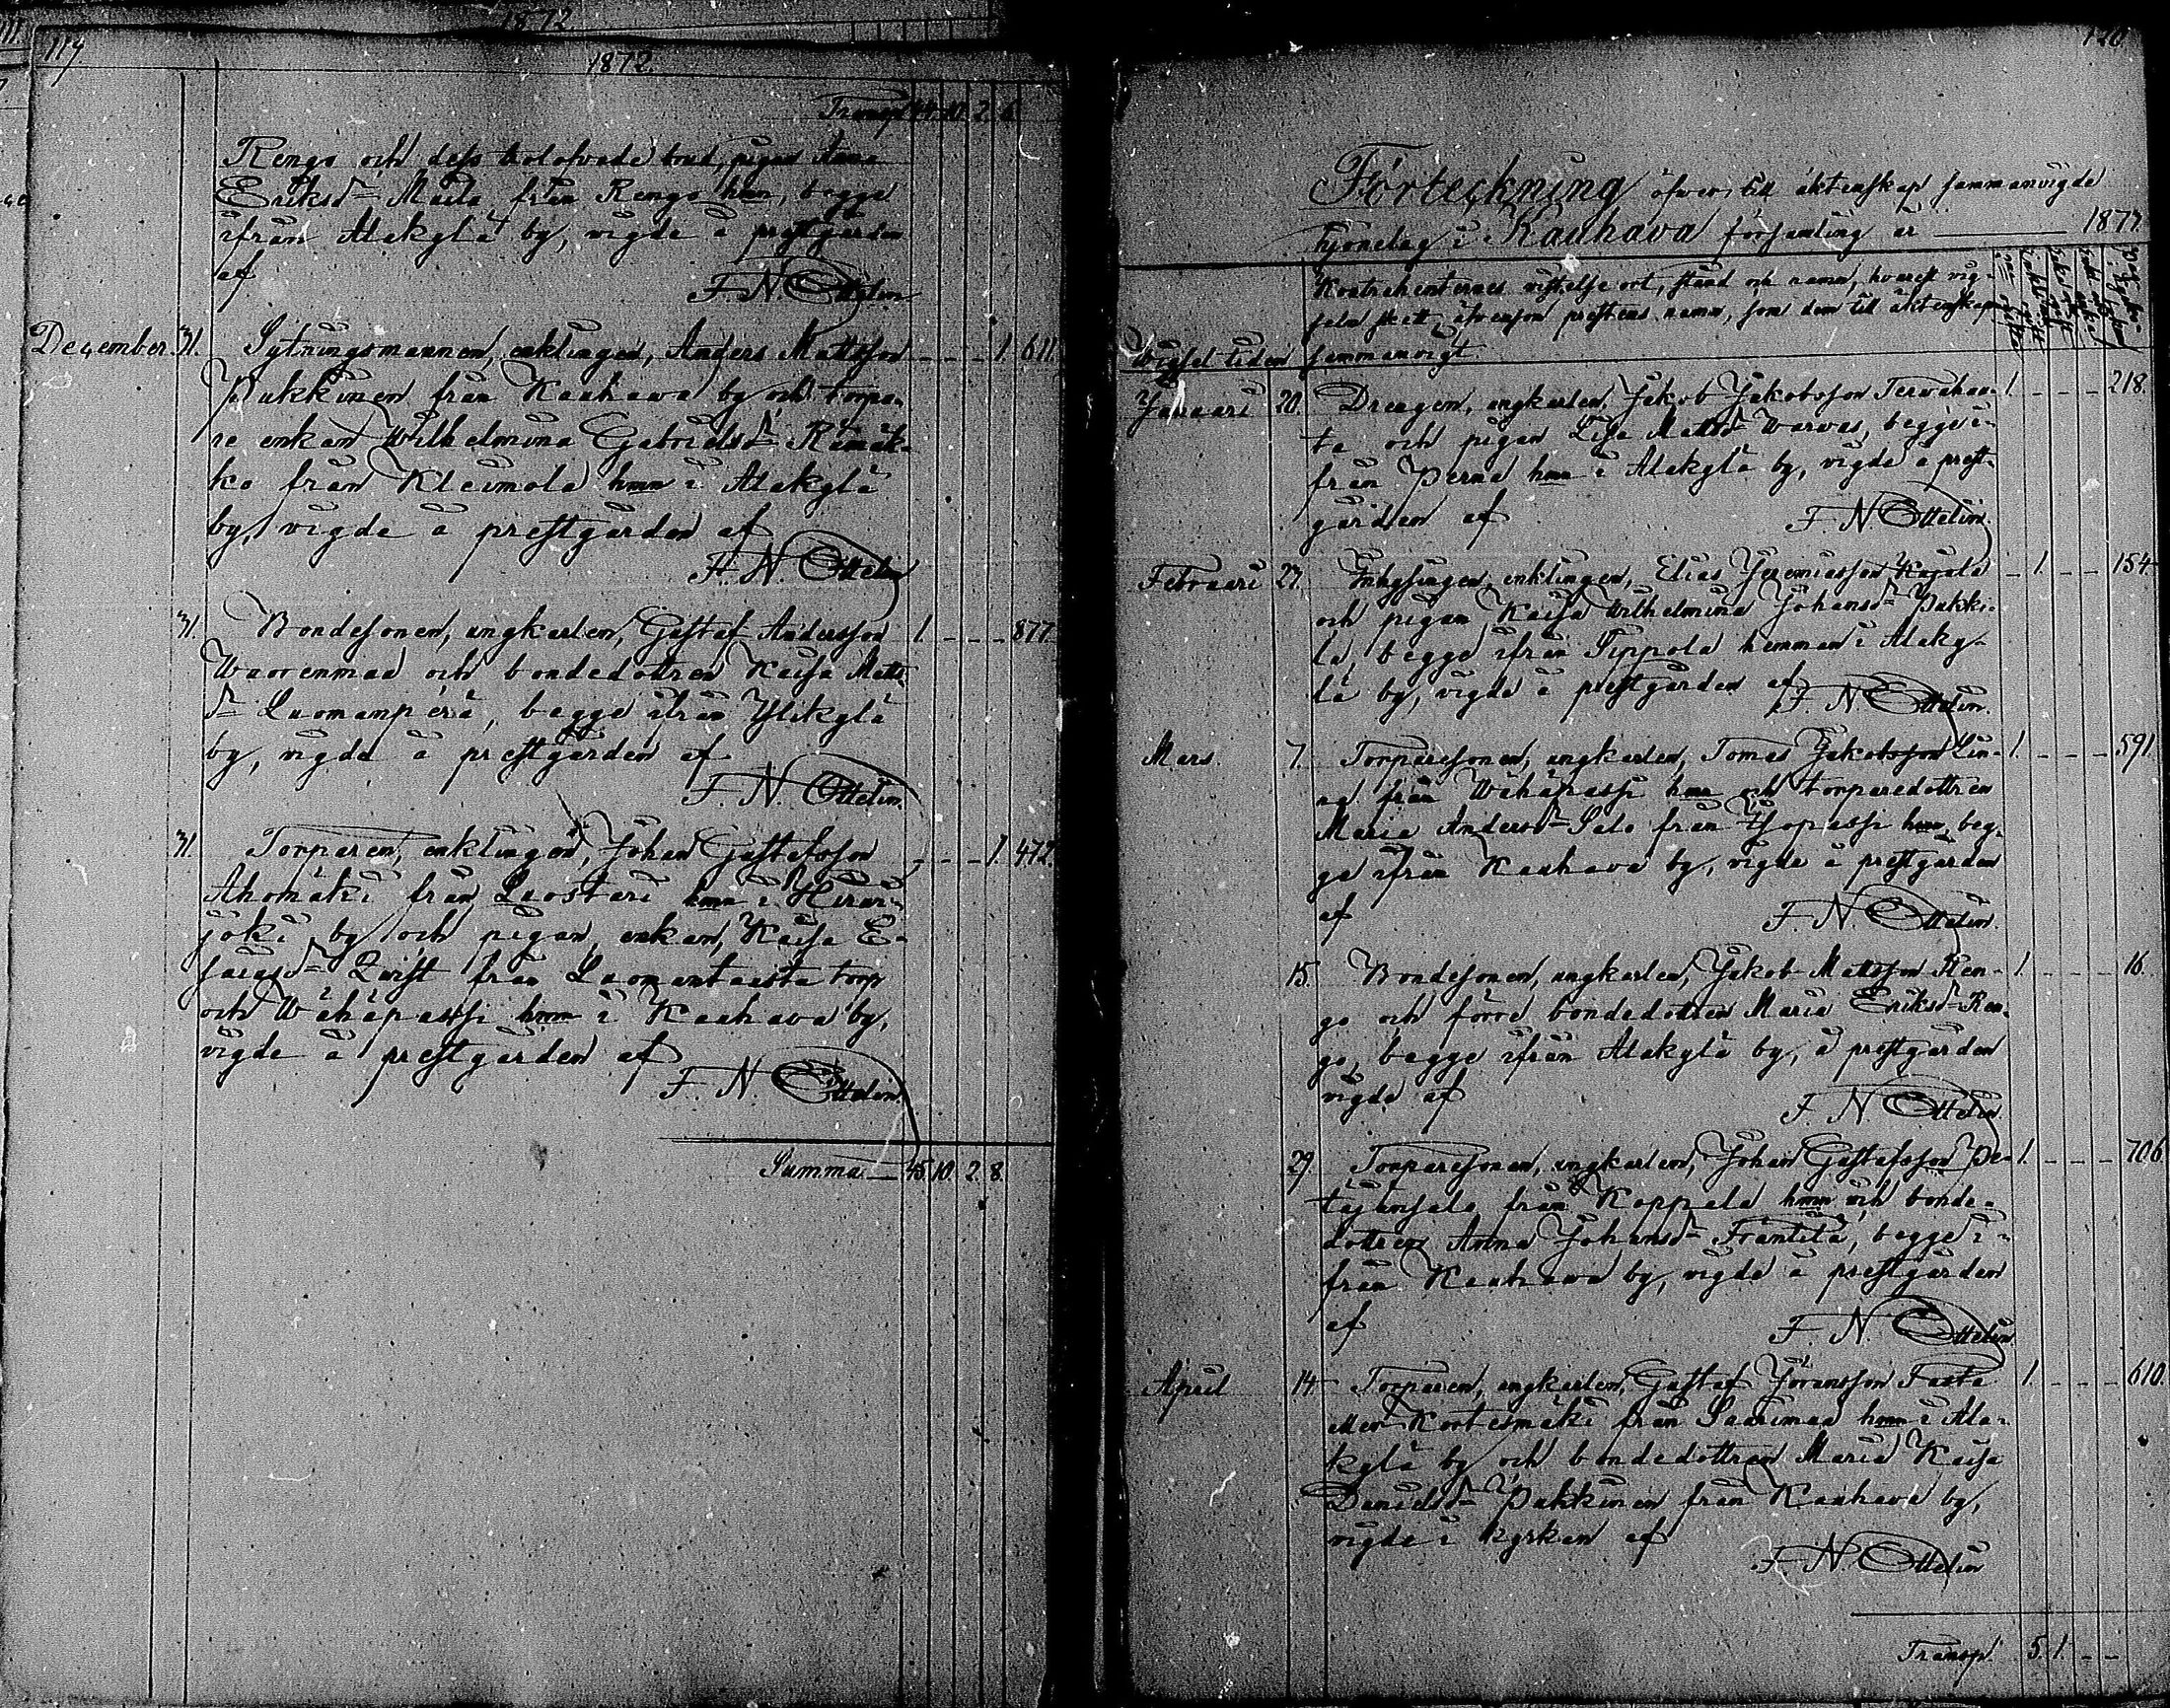 1872
119
1872.
Transp 44. 10. 2. 6.
Rengo och dess trolofvade brud, pigan Anna
Eriksdr Maila från Rengo hmn, begge
ifrån Alakylä by, vigde å prestgården
af
F. N. Ottelin
December 31. Sytningsmannen, enklingen, Anders Mattsson - - - 1. 611.
Pukkinen från Kauhava by och torpa-
re enkan Wilhelmina Gabrielsdr Rimäk-
ko från Kleimola hmn i Alakylä
by, vigde å prestgården af
F. N. Ottelin
31. Bondesonen, ungkarlen, Gustaf Andersson 1. - - - 877.
Wuorenmaa och bondedottren Kaisa Matts
dr Luomanperä, begge ifrån Ylikylä
by, vigde å prestgården af
F. N. Ottelin.
31. Torparen, enklingen, Johan Gustafsson - - - 1. 472.
Ahomäki från Luostari hmn i Hirvi-
joki by och pigan, enkan, Kaisa E-
saiasdr Qvist från torp
och Wähäpassi hmn i Kauhava by,
vigde å prestgården af
F. N. Ottelin.
Summa 45. 10. 2. 8.
120
Förteckning öfver till äktenskap sammanvigde
hjonelag i Kauhava församling år 1877.
Kontrahenternes vistelse ort, stånd och namn, hvarest vig-
seln skett, äfvensom prestens namn, som dem till äktenskap
Vigsel-tiden sammanvigt.
Januari 20. Drengen, ungkarlen, Jakob Jakobsson Tervahau- 1. - - - 218.
ta och pigan Lisa Mattsdr Warvas, begge i-
från Perna hmn i Alakylä by, vigde å prest-
gården af F N Ottelin.
Februari 27. Inhysingen, enklingen, Elias Jeremiasson Kajala - 1. - - 154
och pigan Kaisa Wilhelmina Johansdr Pukki-
la, begge ifrån Sippola hemman i Alaky-
lä by, vigde å prestgården af
F. N Ottelin.
Mars. 7. Torparesonen, ungkarlen, Tomas Jakobsson Lin- 1. - - - 591.
na från Wähäpassi hmn och torparedottren
Maria Andersdr Salo från Isopassi hmn, beg-
ge ifrån Kauhava by, vigde å prestgården
af F. N. Ottelin.
15. Bondesonen, ungkarlen, Jakob Mattsson Ren- 1. - - - 16.
go och förre bondedottren Maria Eriksdr Ren-
go, begge ifrån Alakylä by, å prestgården
vigde af
F. N. Ottelin.
29. Torparesonen, ungkarlen, Johan Gustafsson Pe- 1. - - - 706
täjänsalo från Koppela hmn och bonde-
dottren Anna Johansdr Frantilä, begge i-
från Kauhava by, vigde å prestgården
af F. N. Ottelin
April 14. Torparen, ungkarlen, Gustaf Göransson Fasta 1. - - - 610.
eller Kortesmäki från Saarimaa hmn i Ala-
kylä by och bondedottren Maria Kaisa
Danielsdr Pukkinen från Kauhava by,
vigde i kyrkan af
F. N. Ottelin
Transp. 5. 1. - -